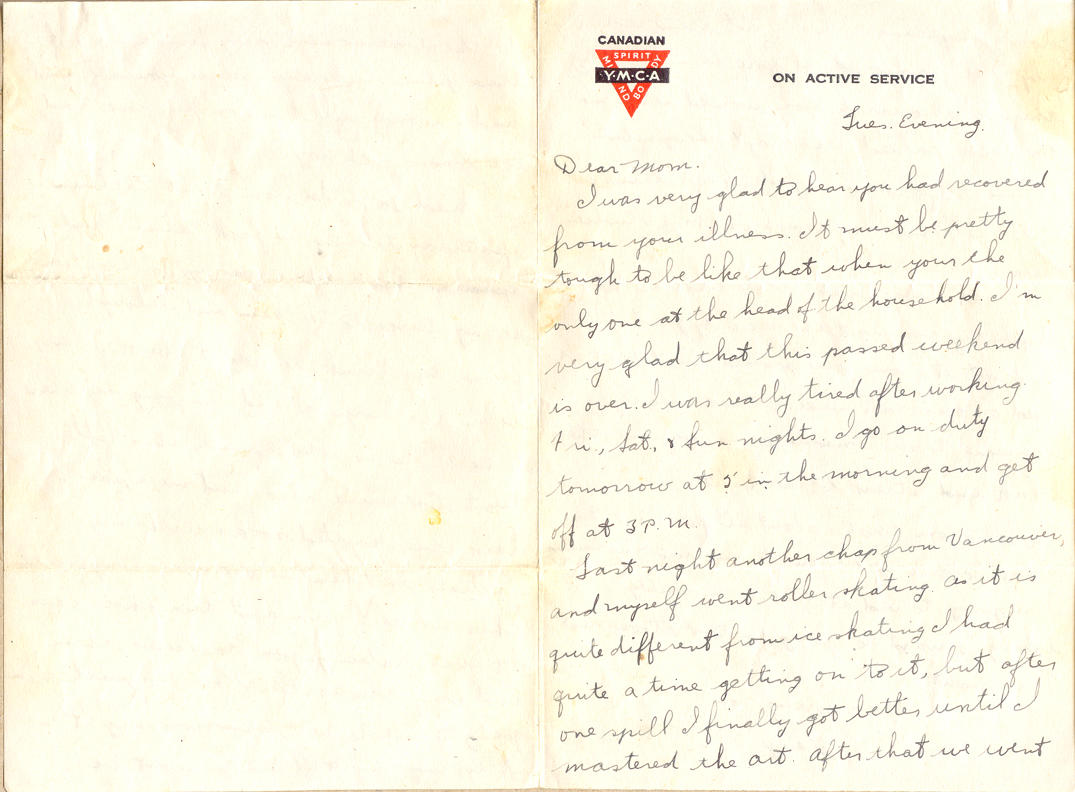 CANADIAN
SPIRIT
MIND BODY
Y·M·C·A
ON ACTIVE SERVICE
Tues. Evening.
Dear Mom.
I was very glad to hear you had recovered
from your illness. It must be pretty
tough to be like that when your the
only one at the head of the household. I'm
very glad that this passed weekend
is over. I was really tired after working
Fri., Sat., & Sun nights. I go on duty
tomorrow at 5 in the morning and get
off at 3 P.M.
Last night another chap from Vancouver,
and myself went roller skating. as it is
quite different from ice skating I had
quite a time getting on to it, but after
one spill I finally got better until I
mastered the art. After that we went